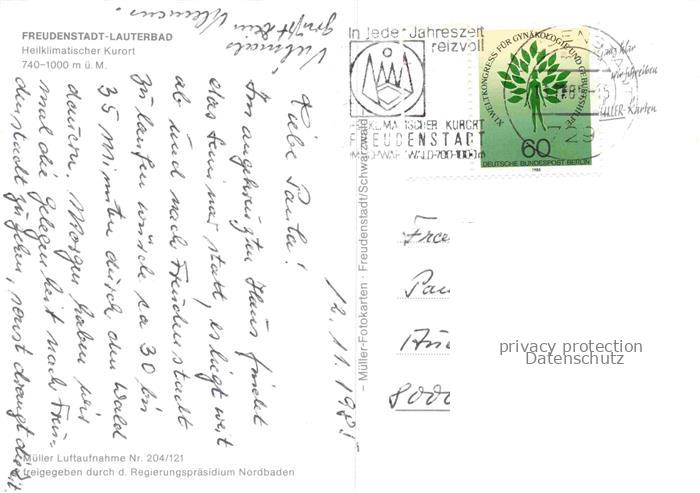 FREUDENSTADT-LAUTERBAD
Heilklimatischer Kurort
740-1000 m ü. M.
12.11.1985
Liebe Paula!
Im angekreuzten Haus findet
das Seminar statt, es liegt weit
ab und nach Freudenstadt
zu laufen würde ca 30 bis
35 Minuten durch den Wald
dauern. Morgen haben wir
mal die Gelegenheit nach Freu-
denstadt zu gehen, sonst drängt die Zeit.
Vielmals
grüßt Dein Klemens.
Müller Luftaufnahme Nr. 204/121
freigegeben durch d. Regierungspräsidium Nordbaden
– Müller-Fotokarten · Freudenstadt/Schwarzwald
In jeder Jahreszeit
reizvoll
HEILKLIMATISCHER KURORT
FREUDENSTADT
IM SCHWARZWALD·700-1000m
XI. WELTKONGRESS FÜR GYNÄKOLOGIE UND GEBURTSHILFE
60
DEUTSCHE BUNDESPOST BERLIN
1985
Ganz klar
wir schreiben
MÜLLER-Karten
Frau
8000
privacy protection
Datenschutz